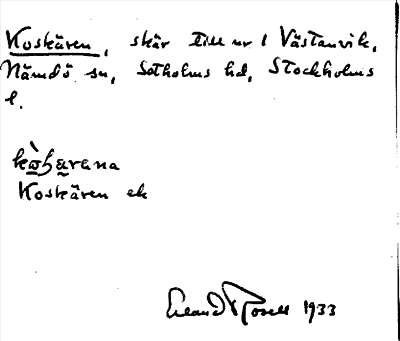 Koskären, skär till nr 1 Västanvik,
Nämdö sn, Sotholms hd, Stockholms
l.
Koskären ek
Erland Rosell 1933